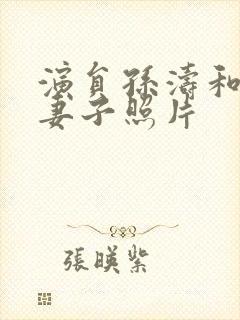 演員孫濤和
妻子照片
張暎紫